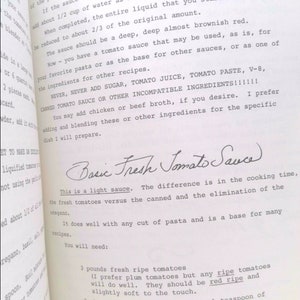 about 1/2 cup of water
When completed, the entire liquid that you
be reduced to about 2/3 of the original amount.
The sauce should be a deep, deep almost brownish red.
Now - you have a tomato sauce that may be used, as is, for
YOUR favorite pasta or as the base for other sauces, or as one of
the ingredients for other recipes.
NEVER, NEVER ADD SUGAR, TOMATO JUICE, TOMATO PASTE, V-8,
CANNED TOMATO SAUCE OR OTHER INCOMPATIBLE INGREDIENTS!!!!!!
You may add chicken or beef broth, if you desire. I prefer
adding and blending these or other ingredients for the specific
I will prepare.
Basic Fresh Tomato Sauce
This is a light sauce. The difference is in the cooking time,
the fresh tomatoes versus the canned and the elimination of the
oregano.
It does well with any cut of pasta and is a base for many
recipes.
You will need:
3 pounds fresh ripe tomatoes
(I prefer plum tomatoes but any ripe tomatoes
will do well. They should be red ripe and
slightly soft to the touch.